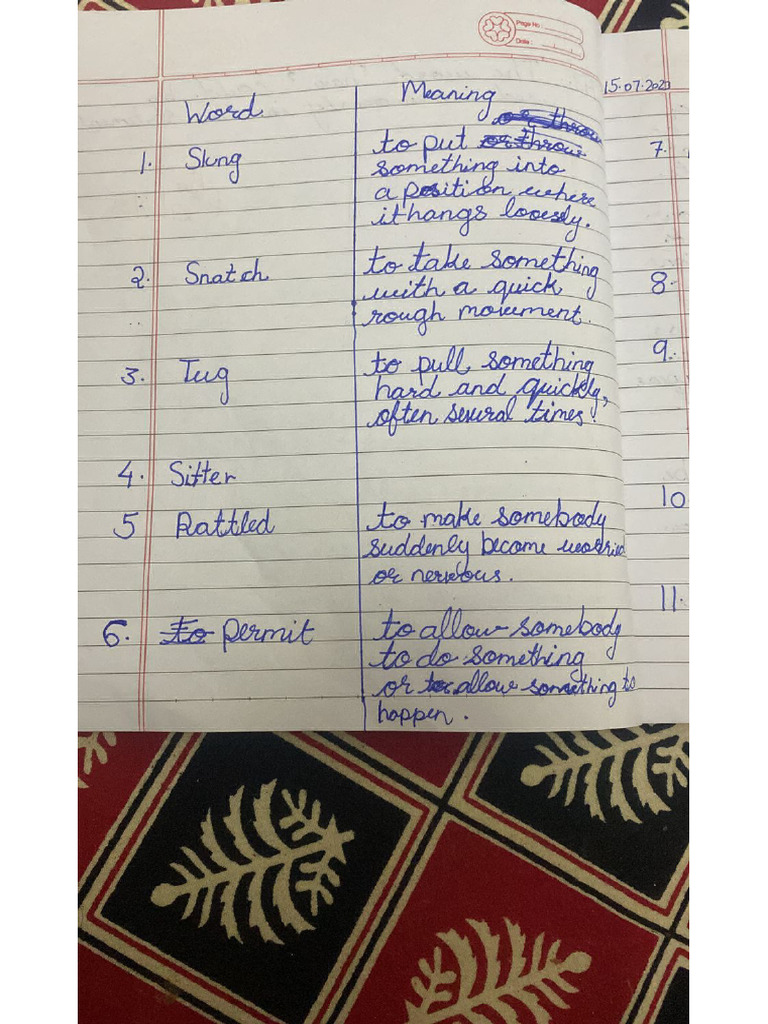 Page No:
Date:
15.07.202
Word
Meaning
1. Slung
to put
something into
a position where
it hangs loosely.
2. Snatch
to take something
with a quick
rough movement.
3. Tug
to pull something
hard and quickly,
often several times.
4. Sitter
5 Rattled
to make somebody
suddenly become worried
or nervous.
6. to permit
to allow somebody
to do something
or to allow something to
happen.
7.
8.
9.
10
11.